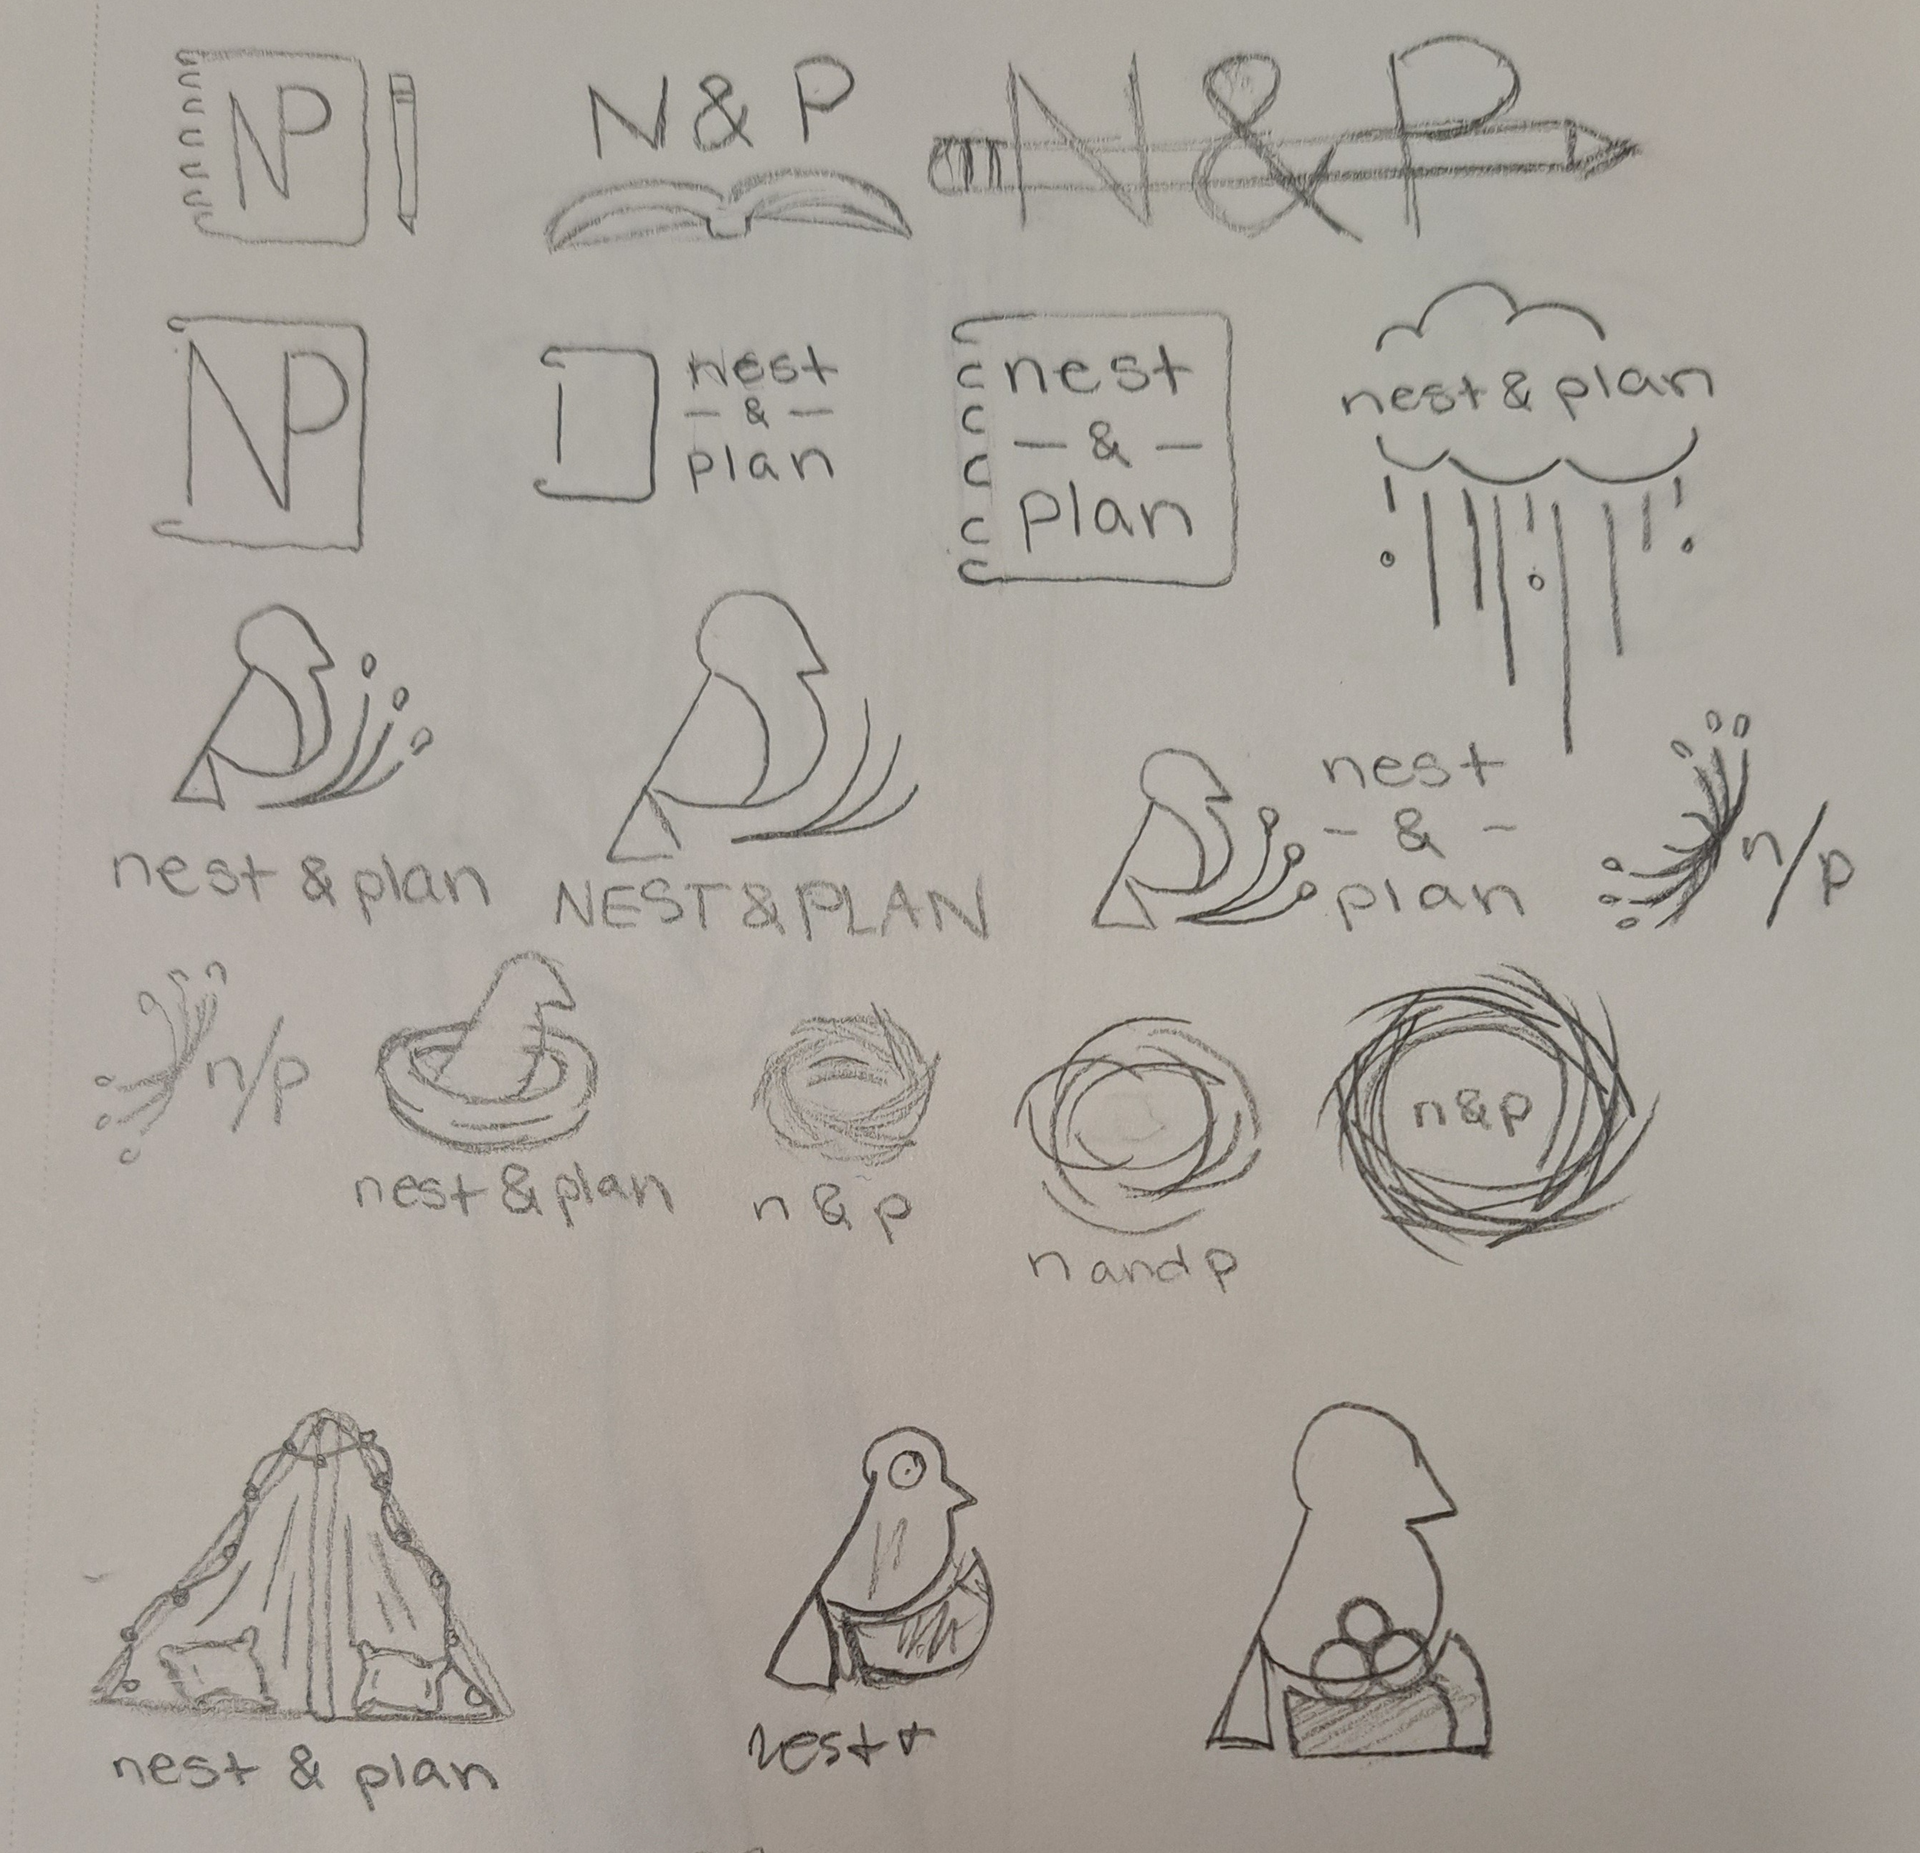 NP
N & P
N & P
NP
nest
- & -
plan
nest
- & -
plan
nest & plan
nest & plan
NEST & PLAN
nest
- & -
plan
n/p
n/p
nest & plan
n & p
n and p
n & p
nest & plan
nest